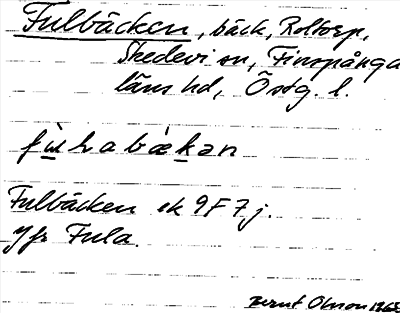 Fulbäcken, bäck, Roltorp,
Skedevi sn, Finspånga
läns hd, Östg. l.
Fulbäcken ek 9F7j.
Jfr Fula.
Bernt Olsson 1968